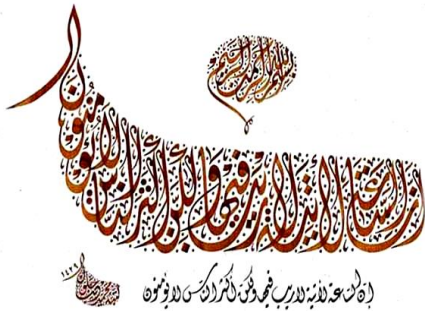 بسم الله الرحمن الرحيم
إن الساعة لآتية لا ريب فيها ولكن أكثر الناس لا يؤمنون
إن الساعة لآتية لا ريب فيها ولكن أكثر الناس لا يؤمنون